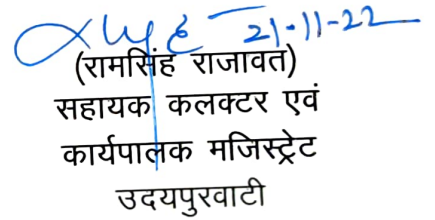 21-11-22
(रामसिंह राजावत)
सहायक कलक्टर एवं
कार्यपालक मजिस्ट्रेट
उदयपुरवाटी